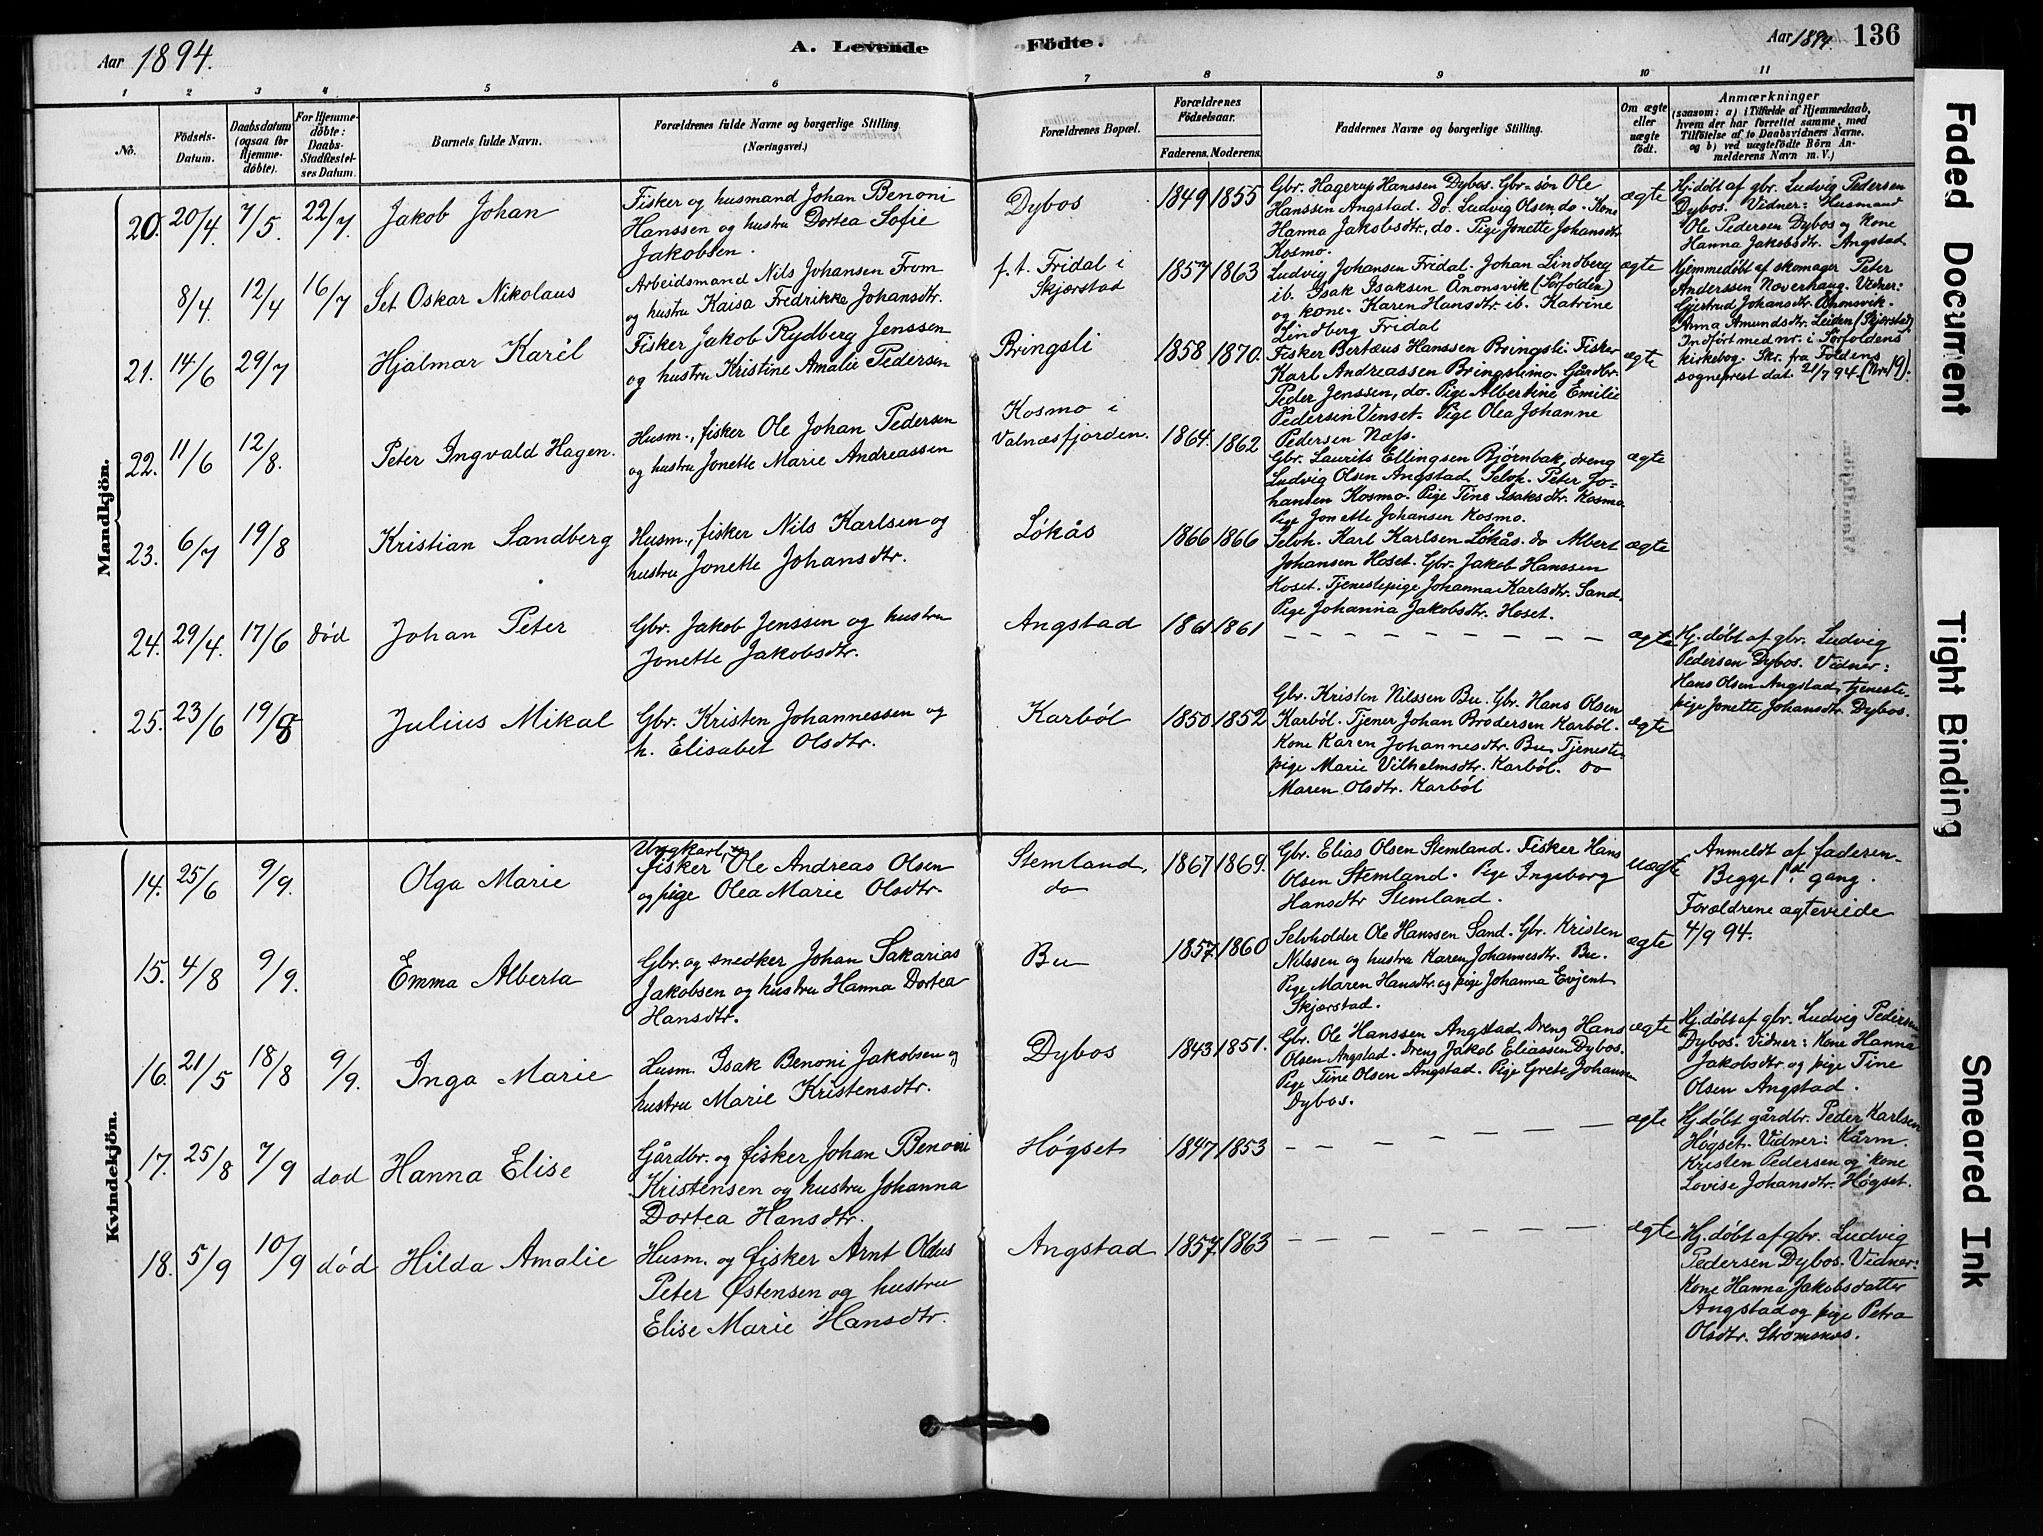 Aar 1894.
A. Levende Födte.
Aar 1894.
136
1
2
3
4
5
6
7
8
9
10
11
No.
Födsels-
Datum.
Daabsdatum
(ogsaa for
Hjemme-
döbte).
For Hjemme-
döbte:
Daabs-
Stadfæstel-
ses Datum.
Barnets fulde Navn.
Forældrenes fulde Navne og borgerlige Stilling.
(Næringsvei.)
Forældrenes Bopæl.
Forældrenes
Födselsaar.
Faderens.
Moderens.
Faddernes Navne og borgerlige Stilling.
Om ægte
eller
uægte
födt.
Anmærkninger
(saasom: a) i Tilfælde af Hjemmedaab,
hvem der har forrettet samme, med
Tilföielse af to Daabsvidners Navne.
og b) ved uægtefödte Börn An-
melderens Navn m. V.)
Mandkjön.
20. 20/4. 7/5. 22/7. Jakob Johan
Fisker og husmand Johan Benoni
Hanssen og hustru Dortea Sofie
Jakobsen.
Dybos 1849 1855
Gbr. Hagerup Hanssen Dybos. Gbr-søn Ole
Hanssen Angstad. Do. Ludvig Olsen, do. Kone
Hanna Jakobsdtr, do. Pige Jonette Johansdtr
Kosmo.
ægte
Hj. døbt af gbr. Ludvig Pedersen
Dybos. Vidner: Husmand
Ole Pedersen Dybos og kone
Hanna Jakobsdtr. Angstad
8/4. 12/4 16/7 Set Oskar Nikolaus
Arbeidsmand Nils Johansen From
og hustru Kaisa Fredrikke Johansdtr.
f. t. Fridal i
Skjærstad
1857 1863
Ludvig Johansen Fridal. Johan Lindberg
ib. Isak Isaksen Ånonsvik (Sørfolden)
og kone. Karen Hansdtr ib. Katrine
Lindberg Fridal
ægte
Hjemmedøbt af skomager Peter
Anderssen Noverhaug. Vidner:
Gjertrud Johansdtr. Ånonsvik.
Anna Amundsdtr. Leiden (Skjærstad)
Indført med nr. i Sørfoldens
kirkebog. Skr. fra Foldens
sogneprest dat. 21/7 94 (Nr. 19).
21. 14/6 29/7 Hjalmar Karèl
Fisker Jakob Rydberg Jenssen
og hustru Kristine Amalie Pedersen
Bringsli 1858 1870.
Fisker Bertæus Hanssen Bringsli. Fisker
Karl Andreassen Bringslimo. Gårdbr.
Peder Jenssen, do. Pige Albertine Emilie
Pedersen Venset. Pige Olea Johanne
Pedersen Næfs.
ægte
22. 11/6 12/8. Peter Ingvald Hagen.
Husm., fisker Ole Johan Pedersen
og hustru Jonette Marie Andreassen
Kosmo i
Valnæsfjorden.
1864. 1862
Gbr. Laurits Ellingsen Bjørnbak, dreng
Ludvig Olsen Angstad, Selvh. Peter Jo-
hansen Kosmo. Pige Tine Isaksdtr. Kosmo
Pige Jonette Johansen Kosmo.
ægte
23. 6/7 19/8 Kristian Sandberg
Husm., fisker Nils Karlsen og
hustru Jonette Johansdtr.
Løkås 1866 1866
Selvh. Karl Karlsen Løkås. do Albert
Johansen Hoset. Gbr. Jakob Hanssen
Hoset. Tjenestepige Johanna Karlsdtr. Sand.
Pige Johanna Jakobsdtr. Hoset.
ægte
24. 29/4. 17/6 død Johan Peter
Gbr. Jakob Jenssen og hustru
Jonette Jakobsdtr.
Angstad 1861 1861
ægte
Hj. døbt af gbr. Ludvig
Pedersen Dybos. Vidner:
Hans Olsen Angstad, tjeneste-
pige Jonette Johansdtr. Dybos.
25. 23/6 19/8 Julius Mikal
Gbr. Kristen Johannessen og
h. Elisabet Olsdtr.
Karbøl 1850 1852
Gbr. Kristen Nilssen Bu. Gbr. Hans Olsen
Karbøl. Tjener Johan Brodersen Karbøl.
Kone Karen Johannesdtr. Bu, Tjeneste-
pige Marie Vilhelmsdtr. Karbøl. do
Maren Olsdtr. Karbøl
ægte
Kvindekjön.
14. 25/6 9/9. Olga Marie
Ungkarl,
fisker Ole Andreas Olsen
og pige Olea Marie Olsdtr.
Stemland,
do
1867 1869.
Gbr. Elias Olsen Stemland. Fisker Hans
Olsen Stemland. Pige Ingeborg
Hansdtr Stemland.
uægte
Anmeldt af faderen.
Begge 1ste gang.
Forældrene ægteviede
4/9 94.
15. 4/8 9/9. Emma Alberta
Gbr. og snedker Johan Sakarias
Jakobsen og hustru Hanna Dortea
Hansdtr.
Bu 1857. 1860
Selvholder Ole Hanssen Sand. Gbr. Kristen
Nilssen og hustru Karen Johannesdtr. Bu.
Pige Maren Hansdtr. og pige Johanna Evjent
Skjærstad.
ægte
16. 21/5 18/8 9/9. Inga Marie
Husm. Isak Benoni Jakobsen og
hustru Marie Kristensdtr.
Dybos 1843 1851.
Gbr. Ole Hanssen Angstad, Dreng Hans
Olsen Angstad. Dreng Jakob Eliassen Dybos.
Pige Tine Olsen Angstad. Pige Grete Johansen
Dybos.
ægte
Hj. døbt af gbr. Ludvig Pedersen
Dybos. Vidner: Kone Hanna
Jakobsdtr og pige Tine
Olsen Angstad.
17. 25/8 7/9 død Hanna Elise
Gårdbr. og fisker Johan Benoni
Kristensen og hustru Johanna
Dortea Hansdtr.
Høgset 1847 1853
ægte
Hj. døbt gårdbr. Peder Karlsen
Høgset. Vidner: Kårm.
Kristen Pedersen og kone
Lovise Johansdtr. Høgset.
18. 5/9 10/9 død Hilda Amalie
Husm. og fisker Arnt Oldus
Peter Østensen og hustru
Elise Marie Hansdtr.
Angstad 1857. 1863
ægte
Hj. døbt af gbr. Ludvig
Pedersen Dybos. Vidner:
Kone Hanna Jakobsdatter
Angstad og pige Petra
Olsdtr. Strømsnes.
Faded Document
Tight Binding
Smeared Ink